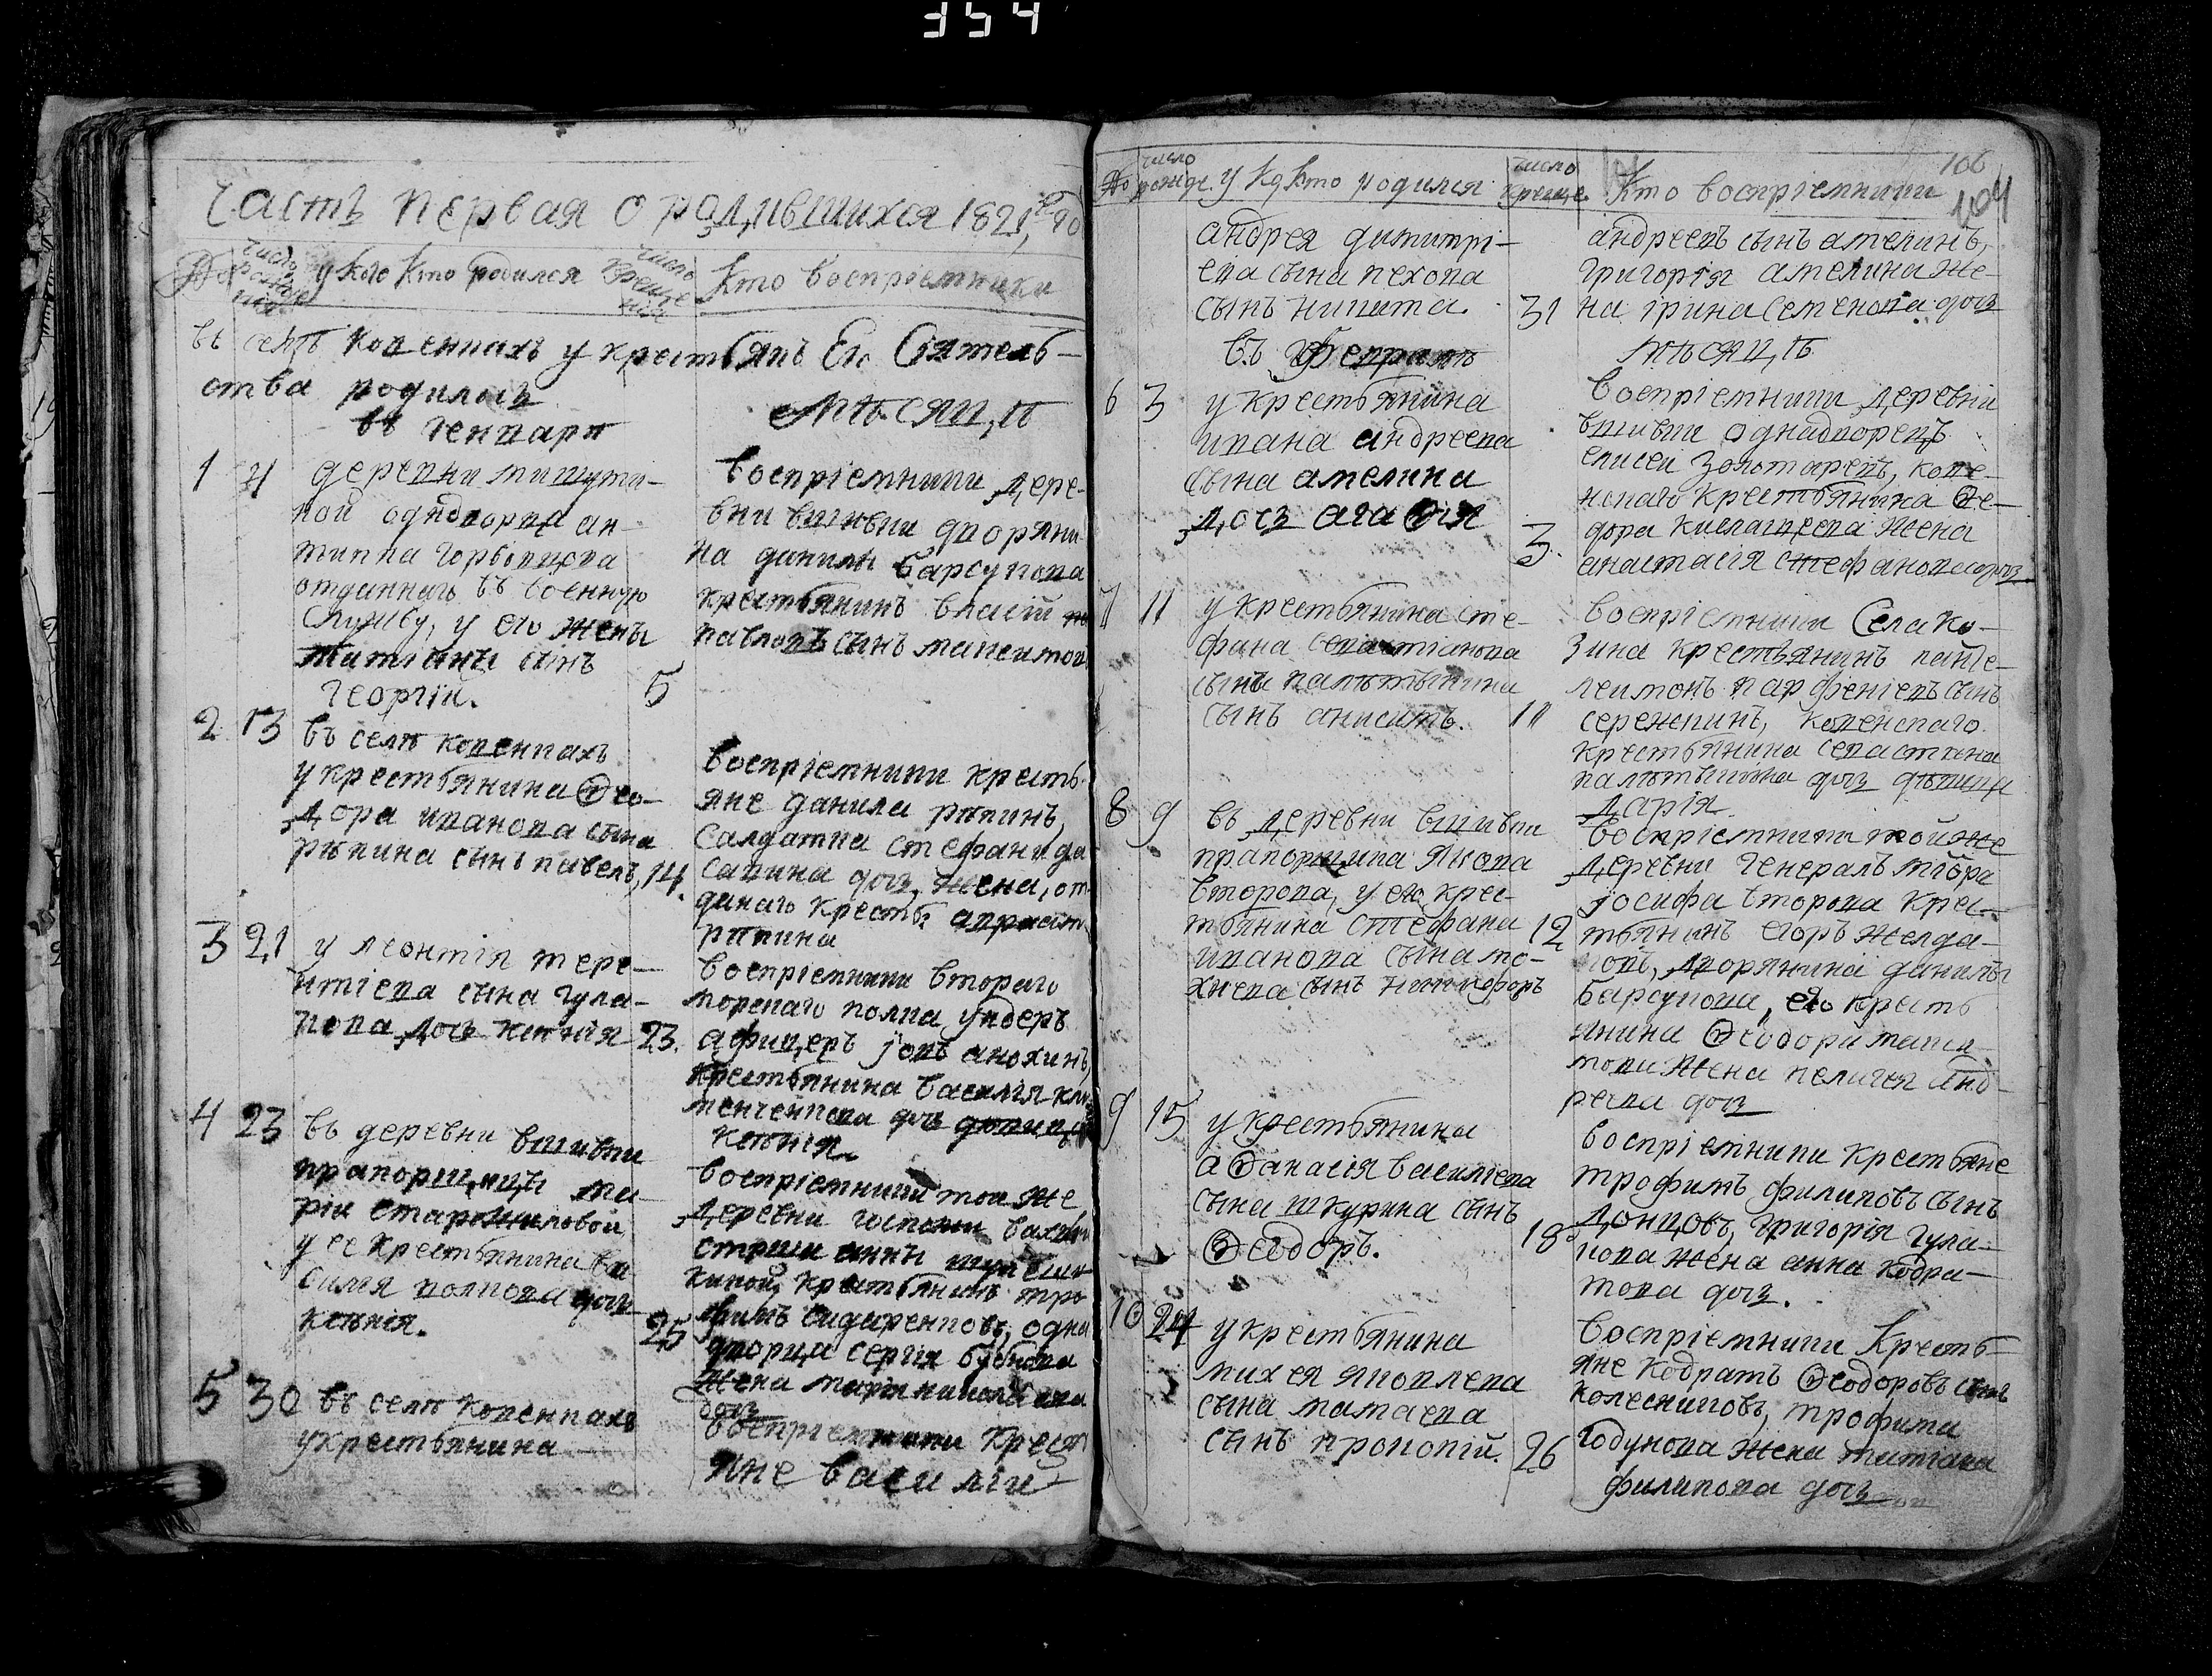 354
Часть первая о родившихся 1821, го
число рождения
у кого кто родился
число крещения
кто воспріемники
въ селѣ копенкахъ у крестьянъ Ег. Сіятель-
ства родилось
въ генваря
мѣсяцѣ
1 4
деревни мишути-
ной однодворца ан-
типпа горбовцова
отданнаго въ военную
службу, у его жены
татіаны сынъ
георгій.
5
воспріемники дере-
вни вшивки дворяни-
на данилы барсукова
крестьянинъ власій
павловъ сынъ максимов
2 13
въ селѣ копенкахъ
у крестьянина Ѳео-
дора иванова сына
рѣпина сынъ павелъ,
14.
воспріемники кресть-
яне данила рѣпинъ,
салдатка стефанида
савина дочь, жена, от-
данаго крестъ:
рѣпина
3 21
у леонтія тере-
нтіева сына гула-
кова дочь ксѣнія
23.
воспріемники втораго
морскаго полка ундеръ
афицеръ іовъ анохинъ,
крестьянина василія кли-
менченкова дочь дѣвица
ксѣнія
4 23
въ деревни вшивки
прапорщицы ма-
ріи старожиловой
у ее крестьянина ва-
силія волкова дочь
ксѣнія.
25
воспріемники той же
деревни госпожи
анны
крестьянинъ тро-
фимъ сидаренковъ, одно-
дворца сергія бубнова
жена марія николаева
дочь
5 30
въ селѣ копенкахъ
у крестьянина
воспріемники крест
яне василій
106
104
число рожде.
у ко кто родился
число креще.
кто воспріемники
андрея димитрі-
ева сына пехова
сынъ никита.
31
андреевъ сынъ амелинъ,
григорія амелина же-
на ірина семенова дочь
въ февралѣ
мѣсяцѣ
6 3
у крестьянина
ивана андреева
сына амелина
дочь агаѳія
3.
воспріемники деревни
вшивки однадворецъ
елисей золотаревъ, копе-
нскаго крестьянина Ѳе-
дора кислащева жена
анастасія стефанове дочь
7 11
у крестьянина сте-
фана севастіанова
сына
сынъ анисимъ.
11
воспріемники села ко-
зина крестьянинъ панте-
леимонъ парфеніевъ сынъ
сережкинъ, копенскаго
крестьянина севастиана
дочь дѣвица
дарія.
8 9
въ деревни вшивки
прапорщика якова
второва, у его крес-
тьянина стефана
иванова сына мо-
хнева сынъ никифоръ
12
воспріемники той же
деревни генералъ маіора
іосифа второва крес-
тьянинъ егоръ желда-
ковъ, дворянина данилы
барсукова, его кресть
янина Ѳеодора макси
мова жена пелагея анд-
реева дочь
9 15
у крестьянина
аѳанасія василіева
сына шкурина сынъ
Ѳеодоръ.
18
воспріемники крестьяне
трофимъ филиповъ сынъ
донцовъ, григорія гула-
кова жена анна кодра-
това дочь.
10 24
у крестьянина
михея яковлева
сына мамаева
сынъ прокопій.
26
воспріемники кресть-
яне кодратъ Ѳеодоровъ сынъ
колесниговъ, трофима
годунова жена татіана
филипова дочь